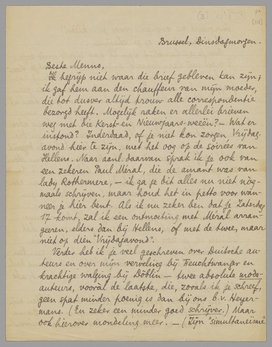 Brussel, Dinsdagmorgen.
Beste Menno,
Ik begrijp niet waar die brief gebleven kan zijn;
ik gaf hem aan den chauffeur van mijn moeder,
die tot dusver altijd trouw alle correspondentie
bezorgd heeft. Mogelijk raken er allerlei brieven
weg met die Kerst- en Nieuwjaars-post? - Wat er
instond? Inderdaad, of je niet kon zorgen Vrijdag-
avond hier te zijn, met het oog op de soirées van
Hellens. Naar aanl. daarvan sprak ik je ook van
een zekeren Paul Méral, die de amant was van
lady Rothermere, - ik ga je dit alles niet nóg-
maals schrijven, maar houd het in petto voor wan-
neer je hier bent. Als ik nu zeker ben dat je Zaterdag
17 komt, zal ik een ontmoeting met Méral arran-
geeren, elders dan bij Hellens, of met de twee, maar
niet op dien "Vrijdagavond".
Verder heb ik je veel geschreven over Duitsche au-
teurs en over mijn verveling bij Feuchtwanger en
krachtige walging bij Döblin - twee absolute mode-
auteurs, vooral de laatste, die, zooals ik je schreef,
geen spat minder ponsig is dan bij ons b.v. Heyer-
mans. (En zeker een minder goed schrijver.) Maar
ook hierover mondeling meer. - (Zijn simultaneïsme